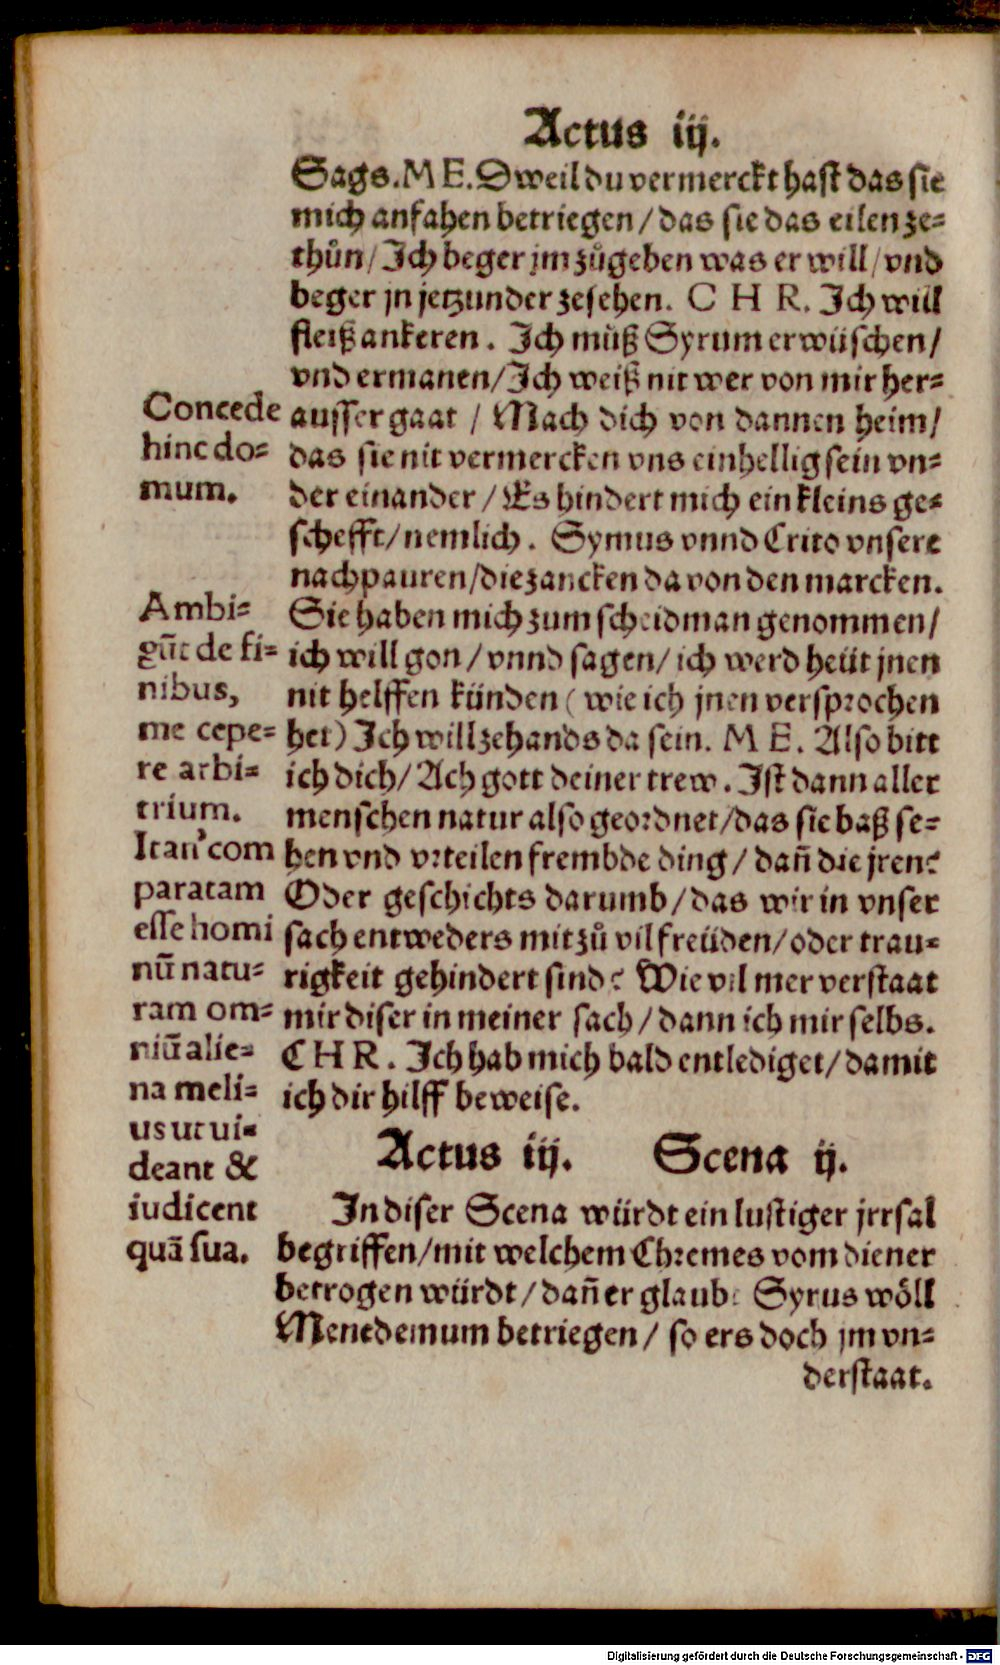 Actus iij.
Sags. M E. Dweil du vermerckt hast das sie
mich anfahen betriegen / das sie das eilen ze-
thůn / Ich beger jm zůgeben was er will / vnd
beger jn jetzunder zesehen. C H R. Ich will
fleiß ankeren. Ich můß Syrum erwüschen /
vnd ermanen / Ich weiß nit wer von mir her-
ausser gaat / Mach dich von dannen heim /
das sie nit vermercken vns einhellig sein vn-
der einander / Es hindert mich ein kleins ge-
schefft / nemlich. Symus vnnd Crito vnsere
nachpauren / die zancken da von den marcken.
Sie haben mich zum scheidman genommen /
ich will gon / vnnd sagen / ich werd heüt jnen
nit helffen künden ( wie ich jnen versprochen
het ) Ich will zehands da sein. M E. Also bitt
ich dich / Ach gott deiner trew. Ist dann aller
menschen natur also geordnet / das sie baß se-
hen vnd vrteilen frembde ding / dañ die jren?
Oder geschichts darumb / das wir in vnser
sach entweders mit zů vil freüden / oder trau-
rigkeit gehindert sind? Wie vil mer verstaat
mir diser in meiner sach / dann ich mir selbs.
C H R. Ich hab mich bald entlediget / damit
ich dir hilff beweise.
Concede
hinc do-
mum.
Ambi-
gũt de fi-
nibus,
me cepe-
re arbi-
trium.
Itan' com
paratam
esse homi
nũ natu-
ram om-
niũ alie-
na meli-
us ut vi-
deant &
iudicent
quã sua.
Actus iij. Scena ij.
In diser Scena würdt ein lustiger jrrsal
begriffen / mit welchem Chremes vom diener
betrogen würdt / dañ er glaubt Syrus wöll
Menedemum betriegen / so ers doch jm vn-
derstaat.
Digitalisierung gefördert durch die Deutsche Forschungsgemeinschaft - DFG